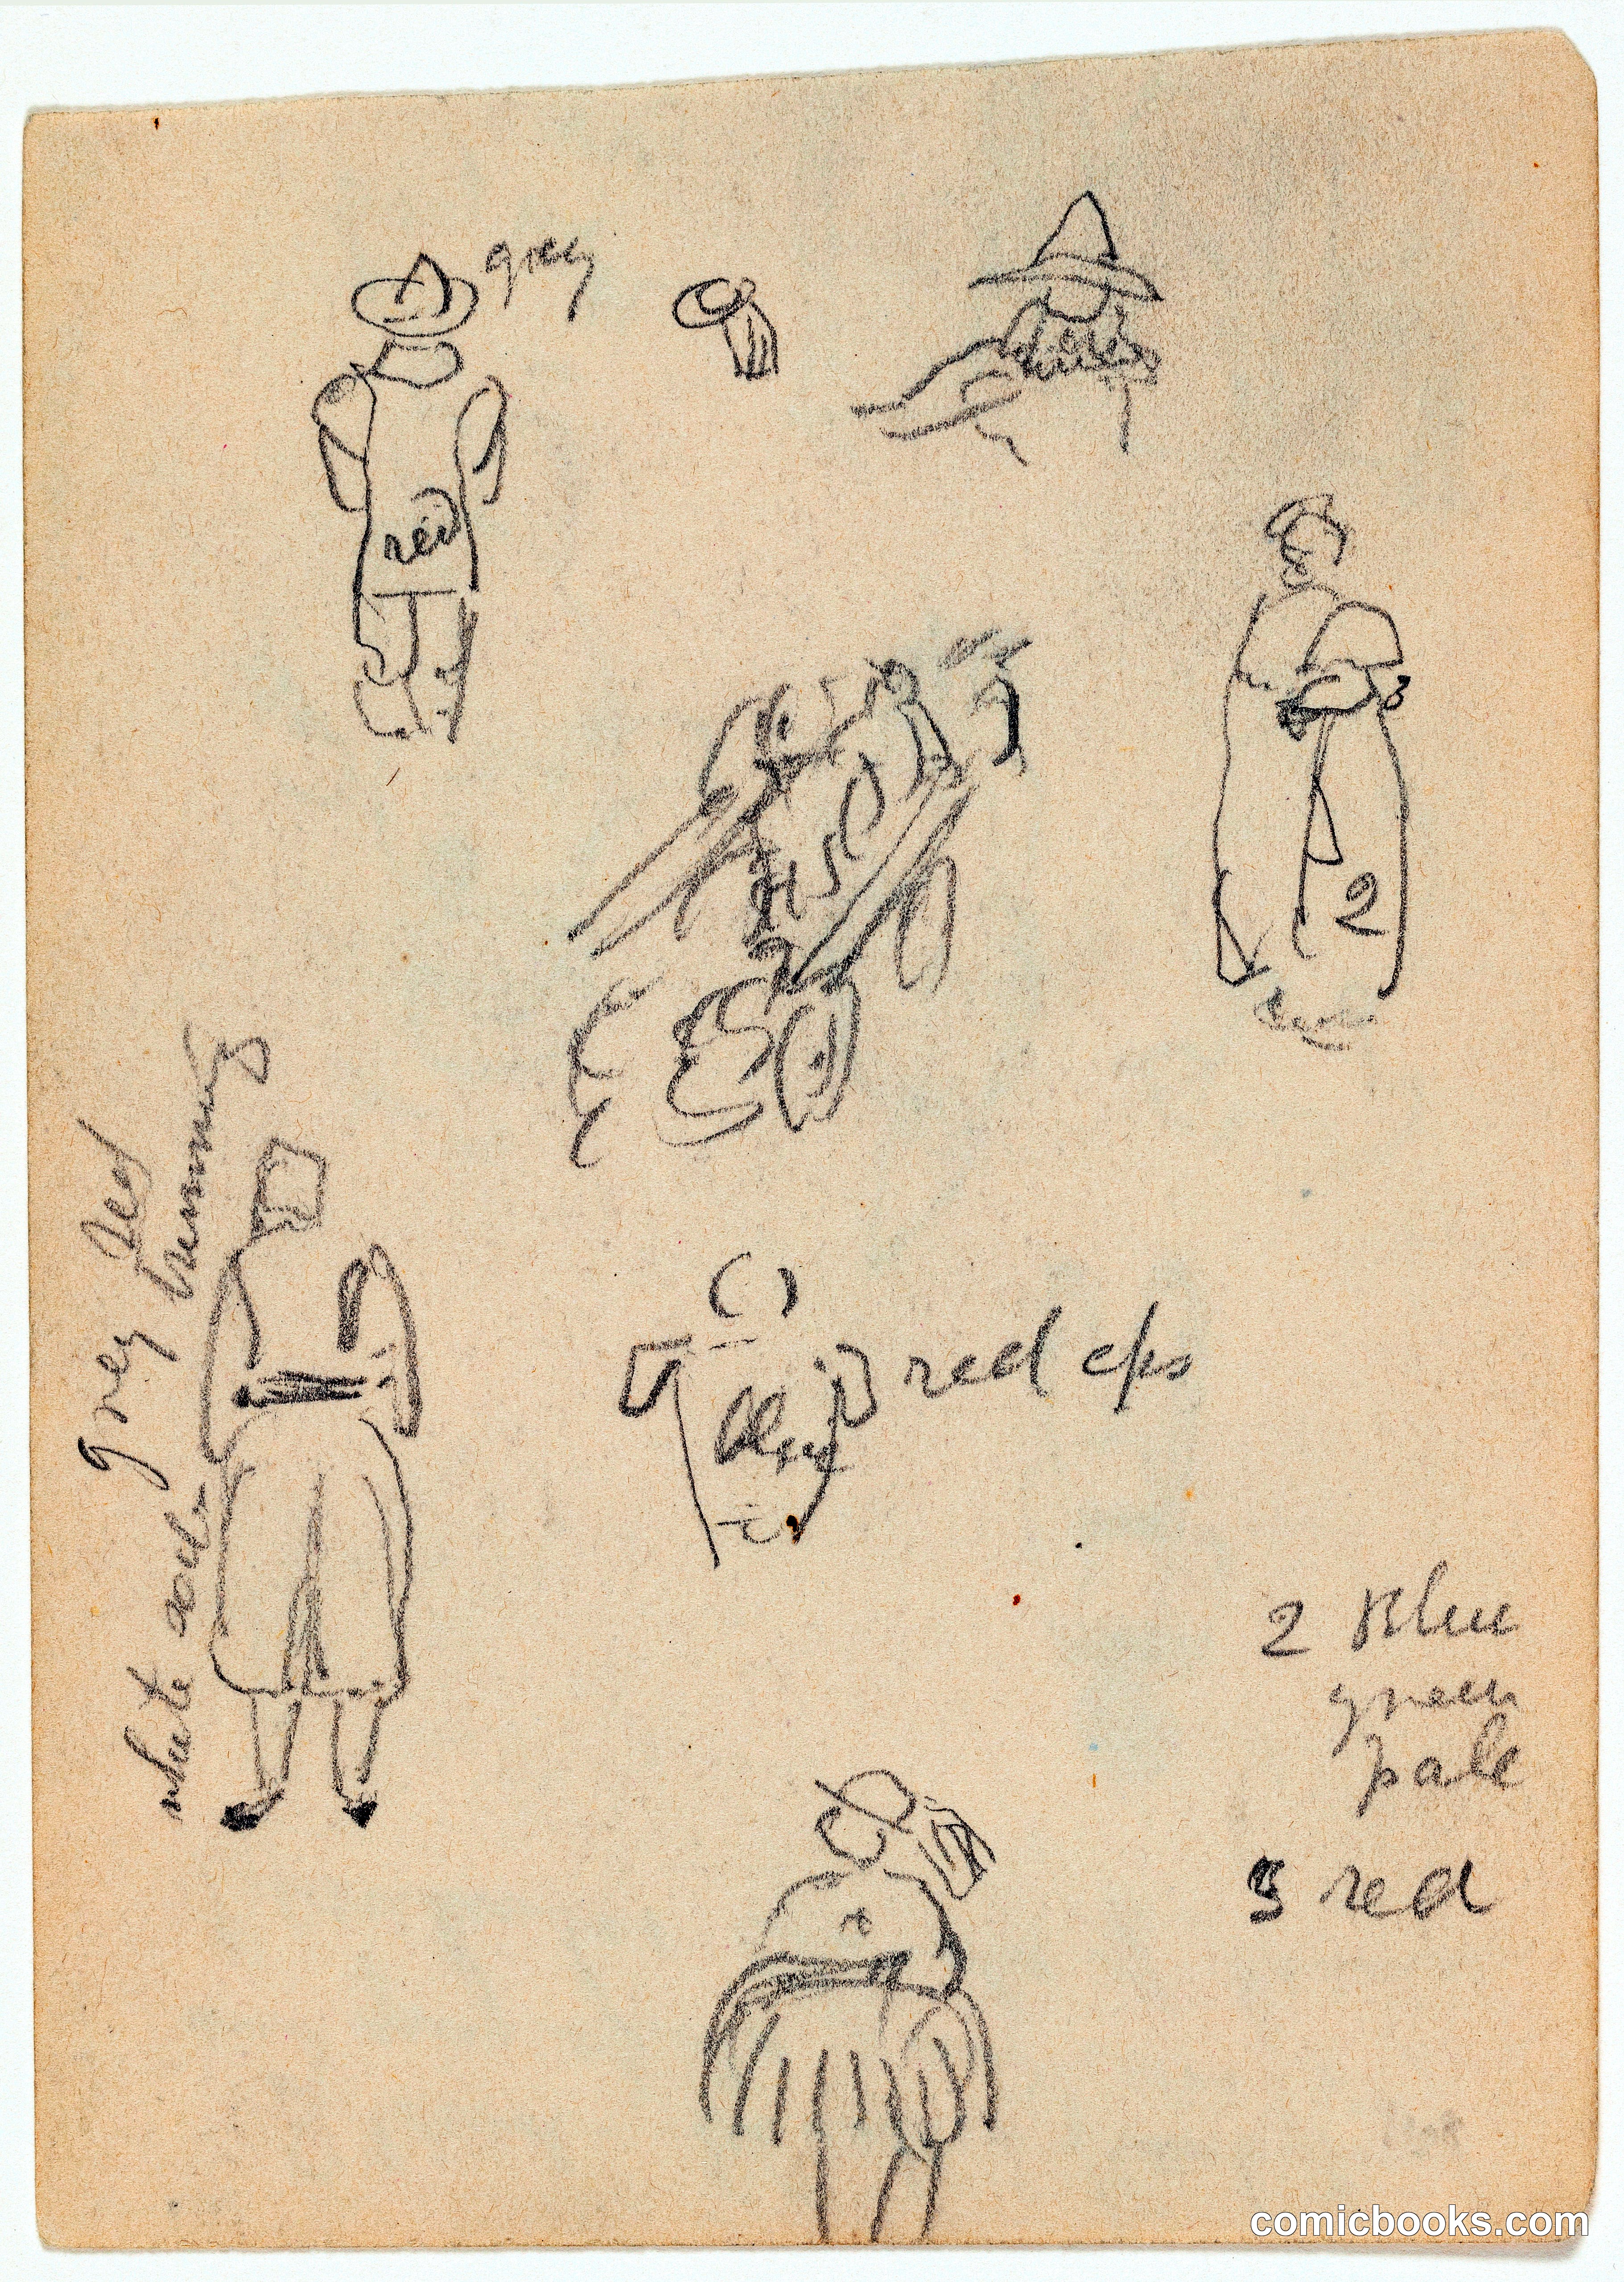 grey
red
3
2
red
grey trimming
white
blue
red eps
2 Blue
green
pale
3 red
comicbooks.com